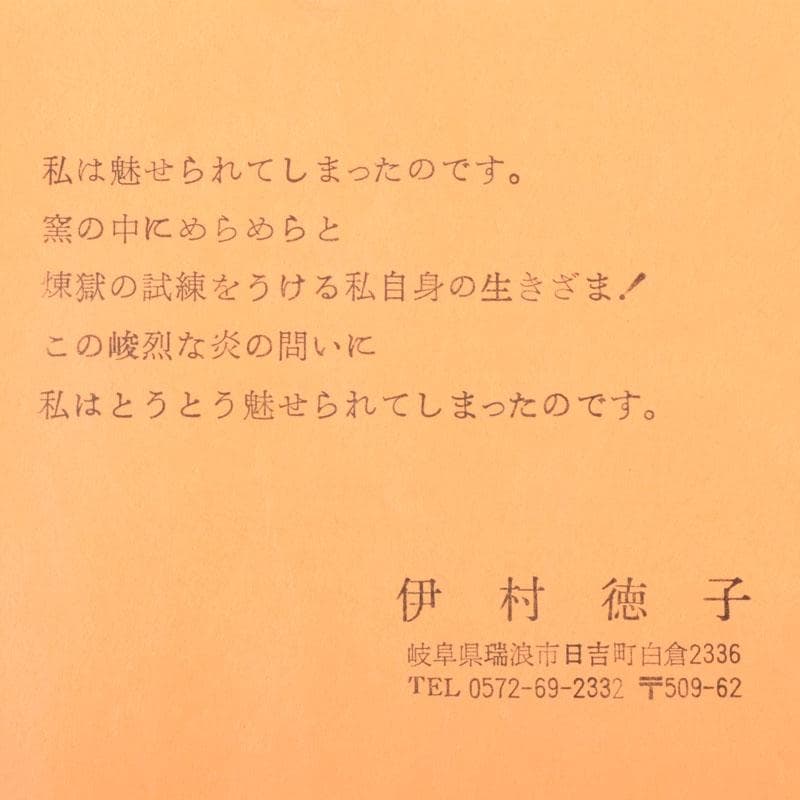 私は魅せられてしまったのです。
窯の中にめらめらと
煉獄の試練をうける私自身の生きざま！
この峻烈な炎の問いに
私はとうとう魅せられてしまったのです。
伊村徳子
岐阜県瑞浪市日吉町白倉2336
TEL 0572-69-2332 〒509-62